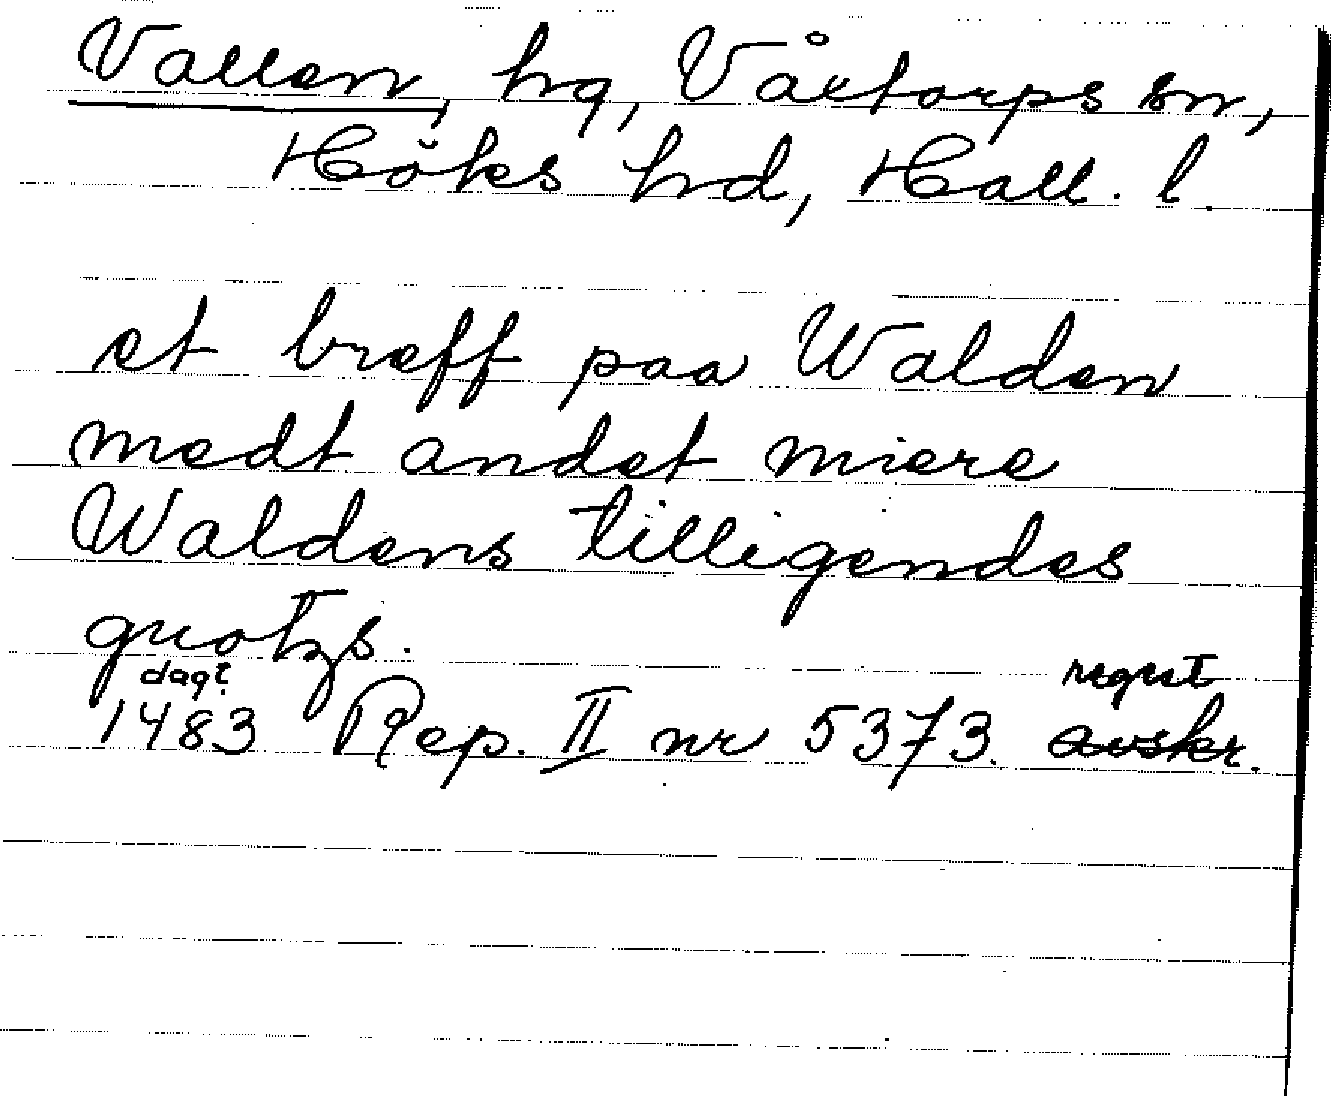 Vallen, hg, Våxtorps sn,
Höks hd, Hall. l.
et breff paa Walden
medt andet miere
Waldens tilligendes
guotzs.
dag?
1483 Rep. II nr 5373. avskr.
regest